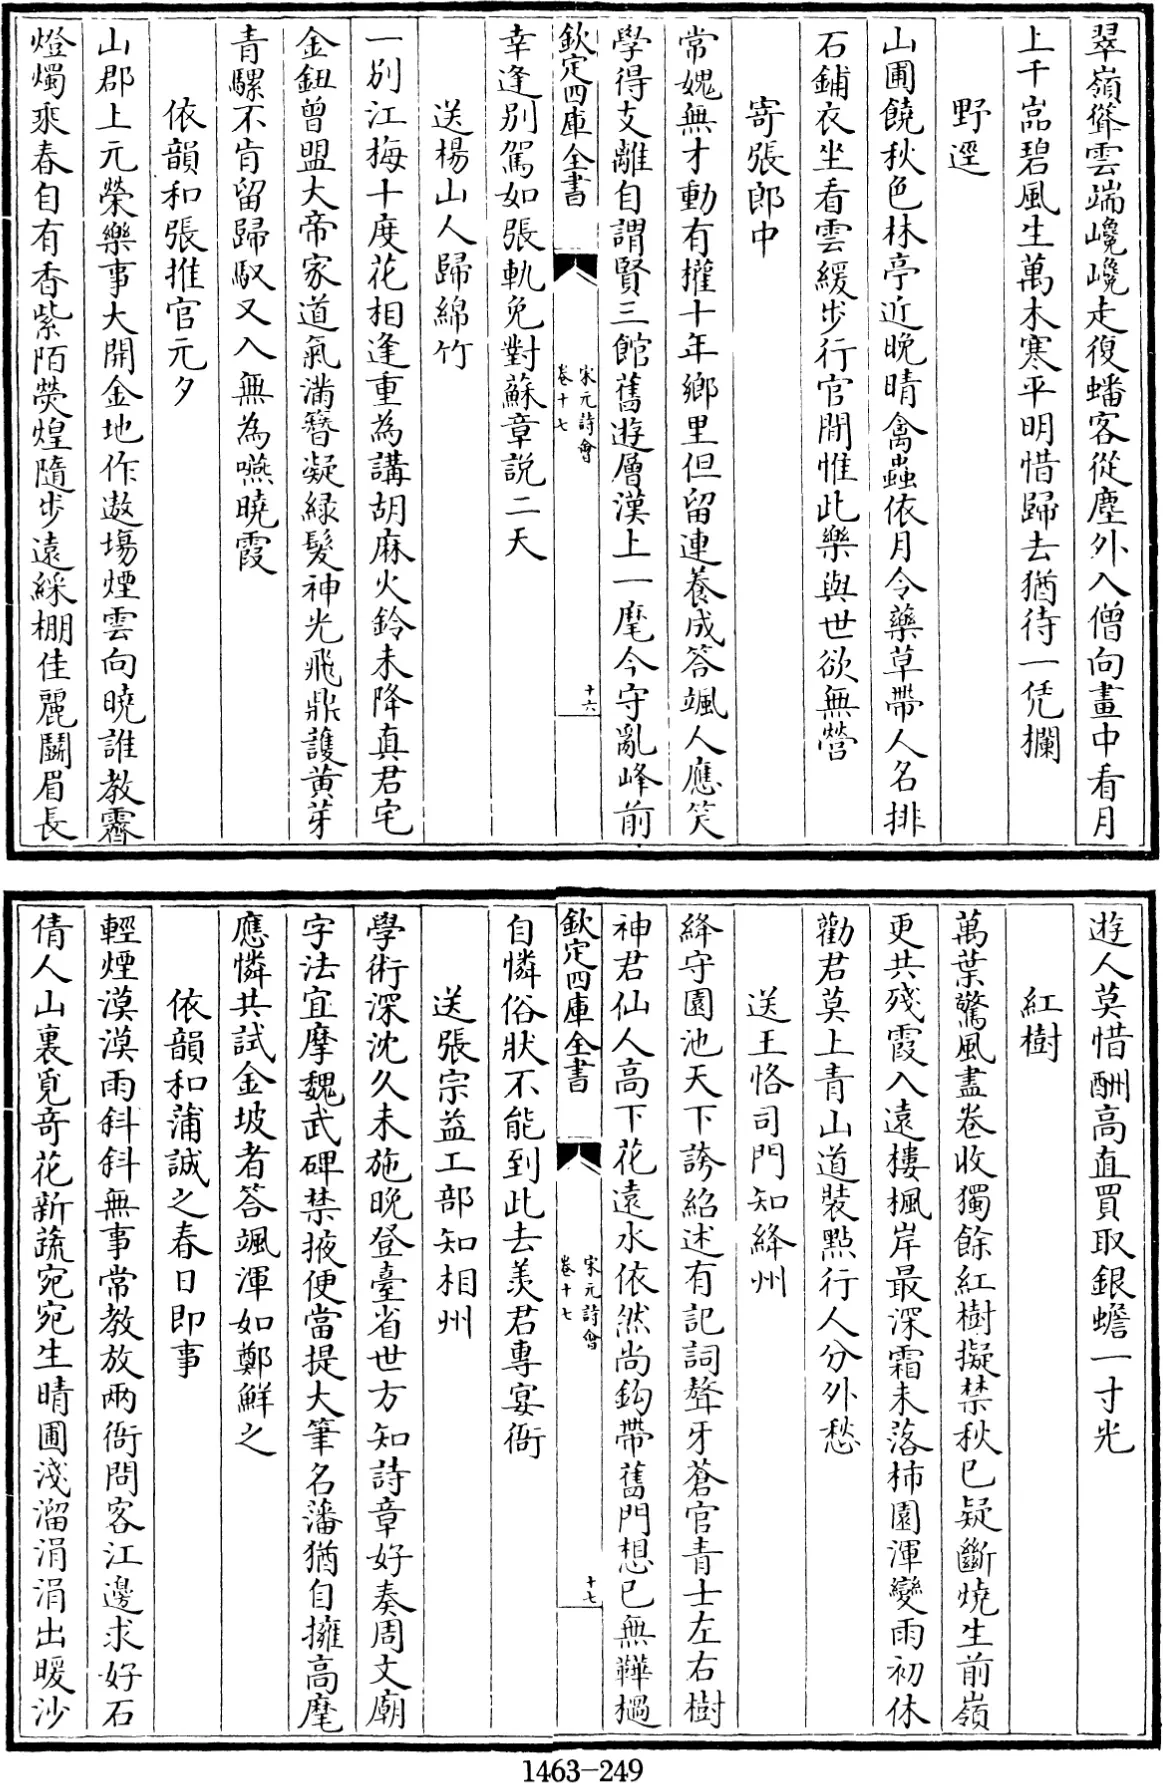 翠嶺聳雲端巉巉走復蟠客從塵外入僧向畫中看月
上千嵓碧風生萬木寒平明惜歸去猶待一凭欄
野逕
山圃饒秋色林亭近晚晴禽蟲依月令藥草帶人名排
石鋪衣坐看雲緩步行官閒惟此樂與世欲無營
寄張郎中
常媿無才動有權十年鄉里但留連養成答颯人應笑
學得支離自謂賢三館舊遊層漢上一麾今守亂峰前
欽定四庫全書
宋元詩會
卷十七
十六
幸逢別駕如張軌免對蘇章說二天
送楊山人歸綿竹
一別江梅十度花相逢重為講胡麻火鈴未降真君宅
金鈕曾盟大帝家道氣滿簪凝緑髮神光飛鼎護黄芽
青騾不肯留歸馭又入無為嚥曉霞
依韻和張推官元夕
山郡上元榮樂事大開金地作遨塲煙雲向曉誰教霽
燈燭乘春自有香紫陌熒煌隨步遠綵棚佳麗鬭眉長
遊人莫惜酬高直買取銀蟾一寸光
紅樹
萬葉驚風盡卷收獨餘紅樹擬禁秋已疑斷燒生前嶺
更共殘霞入遠樓楓岸最深霜未落柿園渾變雨初休
勸君莫上青山道裝點行人分外愁
送王恪司門知絳州
絳守園池天下誇紹述有記詞聱牙蒼官青士左右樹
神君仙人高下花遠水依然尚鈎帶舊門想已無韡檛
欽定四庫全書
宋元詩會
卷十七
十七
自憐俗狀不能到此去羨君專宴衙
送張宗益工部知相州
學術深沈久未施晚登臺省世方知詩章好奏周文廟
字法宜摩魏武碑禁掖便當提大筆名藩猶自擁高麾
應憐共試金坡者答颯渾如鄭鮮之
依韻和蒲誠之春日即事
輕煙漠漠雨斜斜無事常教放兩衙問客江邊求好石
倩人山裏覓奇花新蔬宛宛生晴圃淺溜涓涓出暖沙
1463-249